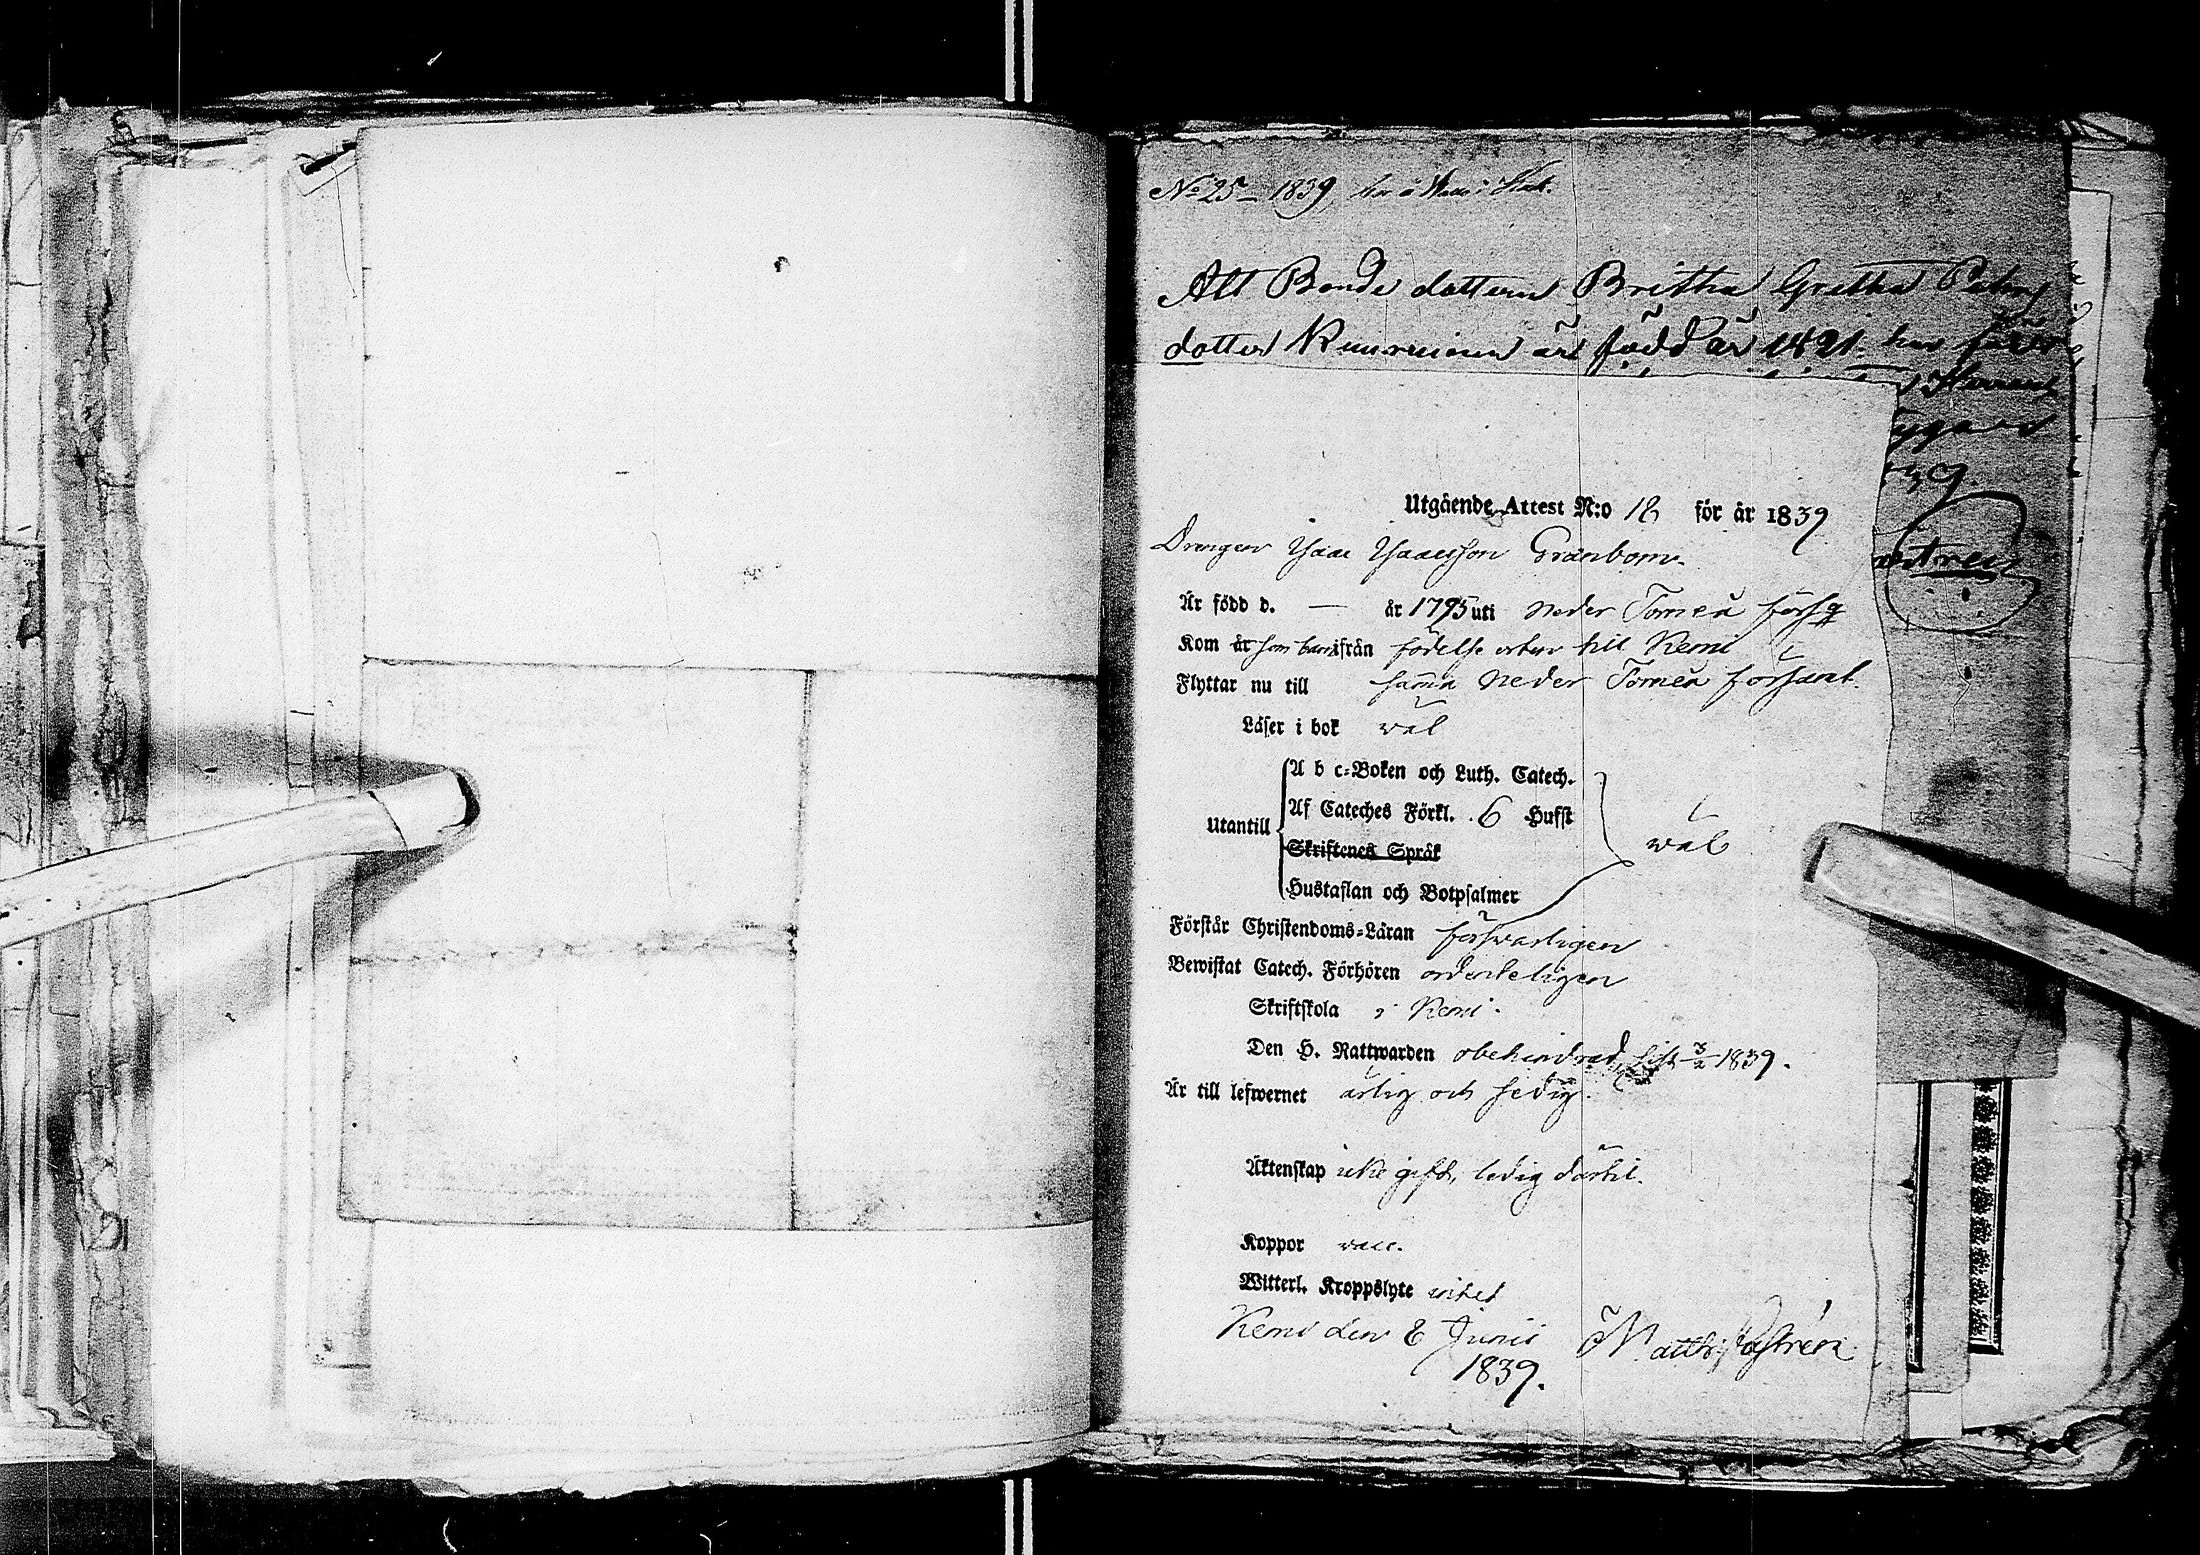 No 25 1839
Att Bonde dottern Britha Gretha Peters
dotter är född år 1821. har
39.
Utgående Attest N:o 18 för år 1839
Drengen Isac Isacsson Granbom.
Är född d. — år 1795 uti Neder Torneå förs
Kom år som barn ifrån födelse orten till Kemi
Flyttar nu till samma Neder Torneå församl.
Läser i bok väl
A b c-Boken och Luth. Catech.
Af Cateches Förkl. 6 Hufst
Utantill väl
Skriftenes Språk
Hustaflan och Botpsalmer
Förstår Christendoms-Läran försvarligen
Bewistat Catech. Förhören ordenteligen
Skriftskola i Kemi.
Den H. Nattwarden obehindrad, sist 3/2 1839.
Är till lefwernet ärlig och sedig.
Äktenskap icke gift, ledig därtil.
Koppor vacc.
Witterl. Kroppslyte intet
Kemi den 8 Junii Matth. Castrén
1839.